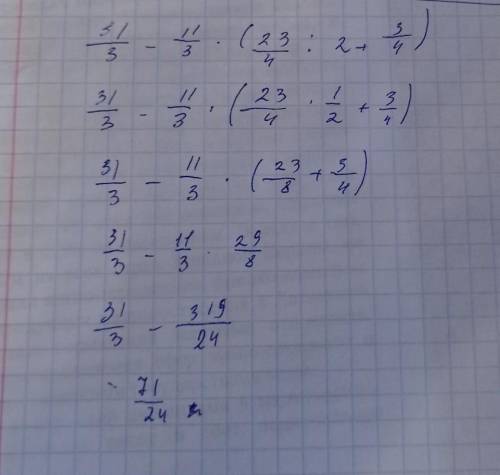 31/3 - 11/3 · (23/4 : 2 + 3/4)
31/3 - 11/3 · (23/4 · 1/2 + 3/4)
31/3 - 11/3 · (23/8 + 3/4)
31/3 - 11/3 · 29/8
31/3 - 319/24
- 71/24